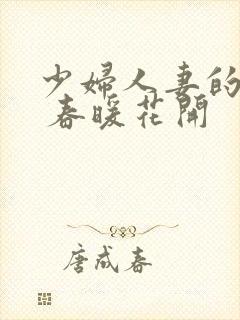 少婦人妻的
春暖花開
唐成春